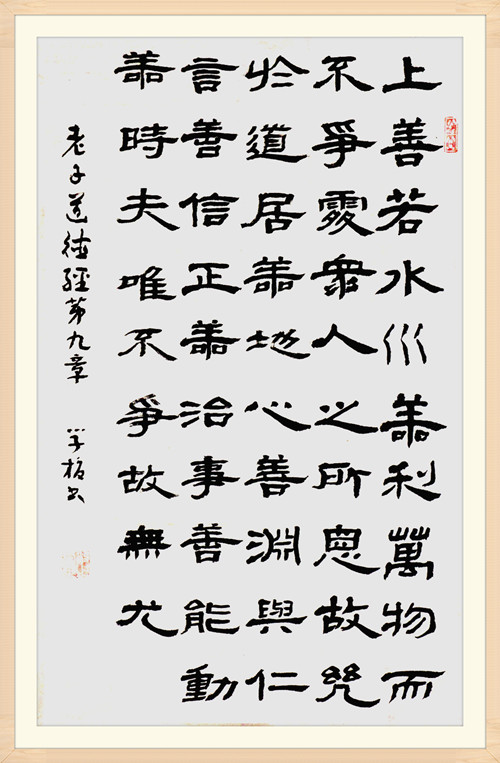 上善若水水善利萬物而
不爭處衆人之所惡故幾
於道居善地心善淵與仁
言善信正善治事善能動
善時夫唯不爭故無尤
老子道德經第九章 书